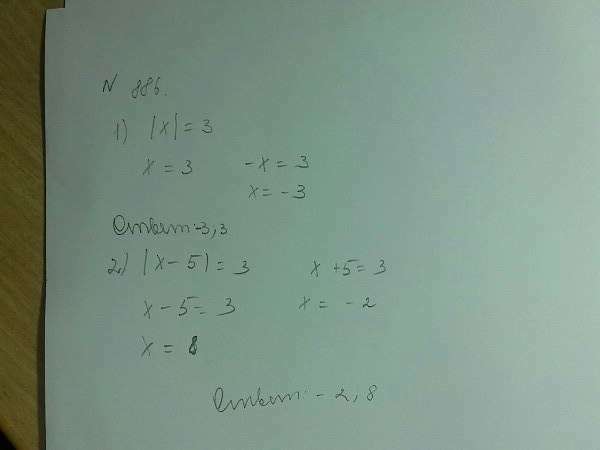 N 886.
1) |x| = 3
x = 3 -x = 3
x = -3
Ответ: -3, 3
2) |x - 5| = 3 x + 5 = 3
x - 5 = 3 x = -2
x = 8
Ответ: -2, 8